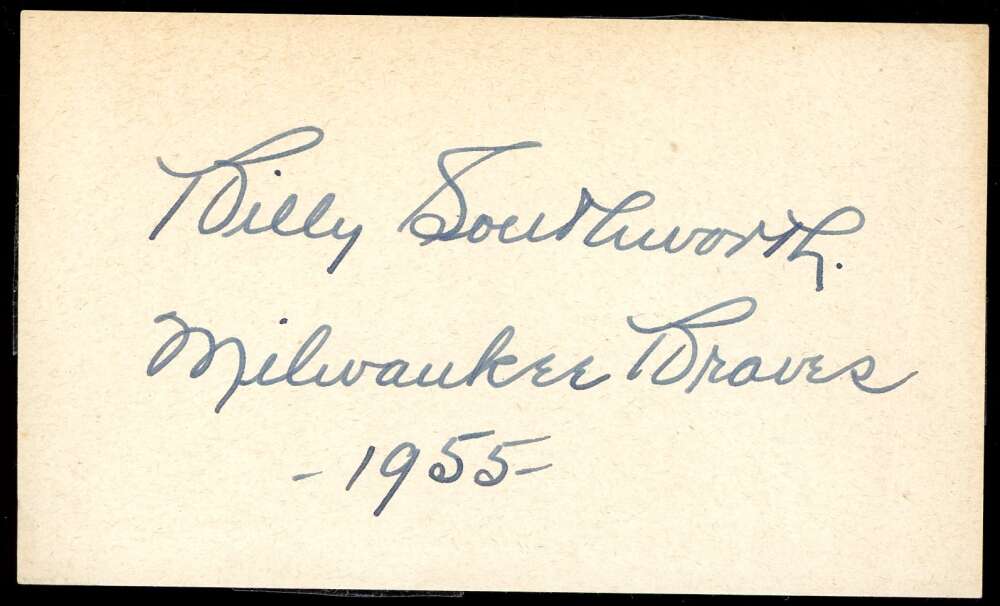 Billy Southworth.
Milwaukee Braves
- 1955-